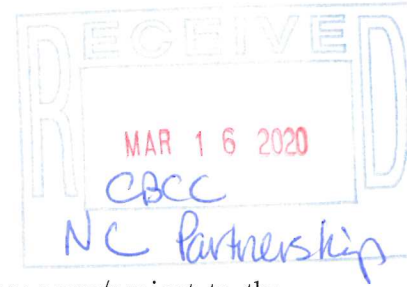 RECEIVED
MAR 16 2020
CBCC
NC Partnership
to the